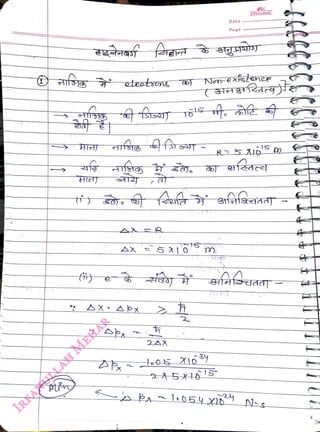 Date
Page
हाइजेनबर्ग सिद्धान्त के अनुप्रयोग
① नाभिक में electrons का Non-existence
(अनअस्तित्व) :-
→ नाभिक की त्रिज्या 10⁻¹⁵ मी. कोटि की
होती है।
→ माना नाभिक की त्रिज्या - R = 5×10⁻¹⁵ m
→ यदि नाभिक में इले० का अस्तित्व
माना जाये, तो
(i) इले० की स्थिति में अनिश्चितता -
Δx = R
Δx = 5×10⁻¹⁵ m
(ii) e⁻ के संवेग में अनिश्चितता -
∵ Δx·Δpₓ ≥ ħ/2
Δpₓ = ħ/2Δx
Δpₓ = 1.05×10⁻³⁴/2×5×10⁻¹⁵
Δpₓ = 1.054×10⁻²⁴ N-s
IRFANULLAH MEHAR